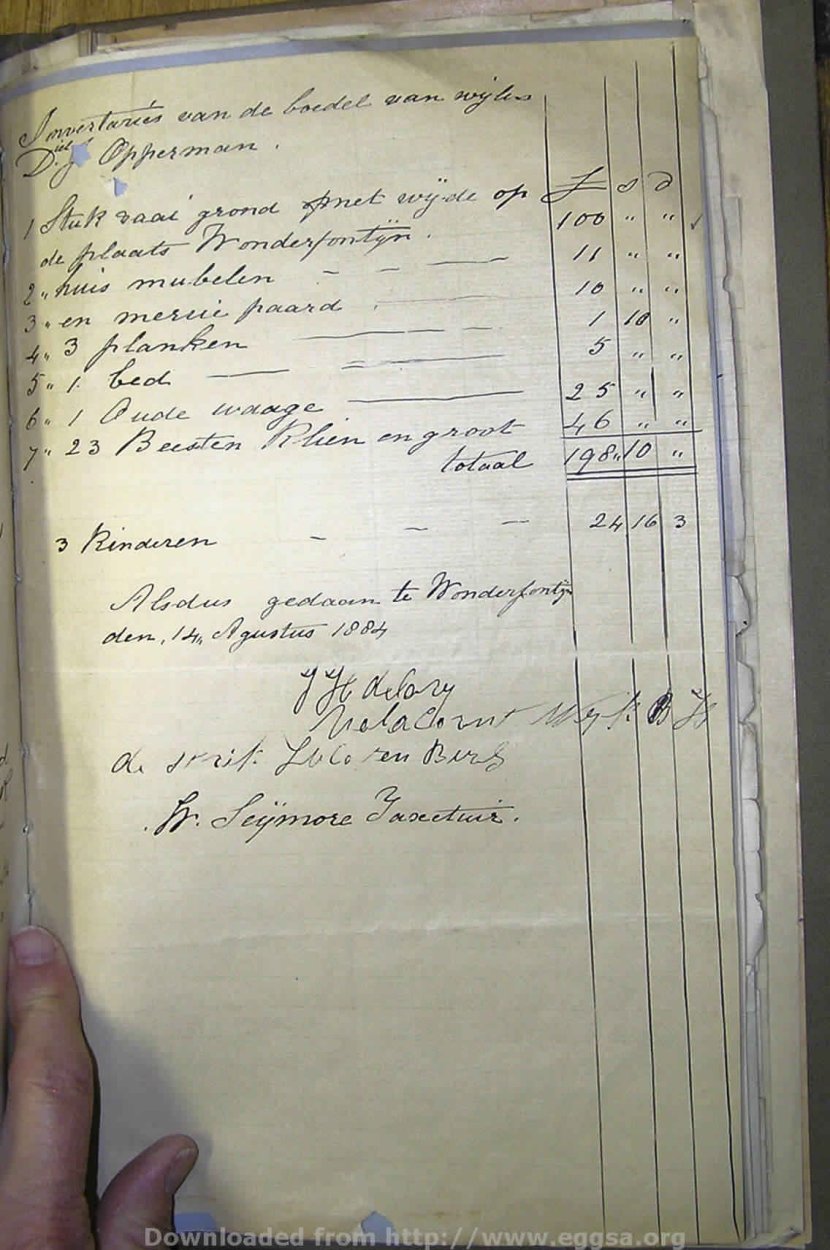 Inventaries van de boedel van wylen
D. J. Opperman.
£ s d
1 Stuk zaai grond met wyde op 100 " "
de plaats Wonderfontyn.
2 " huis mubelen - - — 11 " "
3 " en merrie paard — 10 " "
4 " 3 planken — — — 1 10 "
5 " 1 bed — — 5 " "
6 " 1 Oude waage — 25 " "
7 " 23 Beesten Klien en groot 46 " "
totaal 198 " 10 "
3 Kinderen - - — 24 16 3
Alsdus gedaan te Wonderfontyn
den, 14, Agustus 1884
Wyk B
W. Seymore Taxetuir.
Downloaded from http://www.eggsa.org